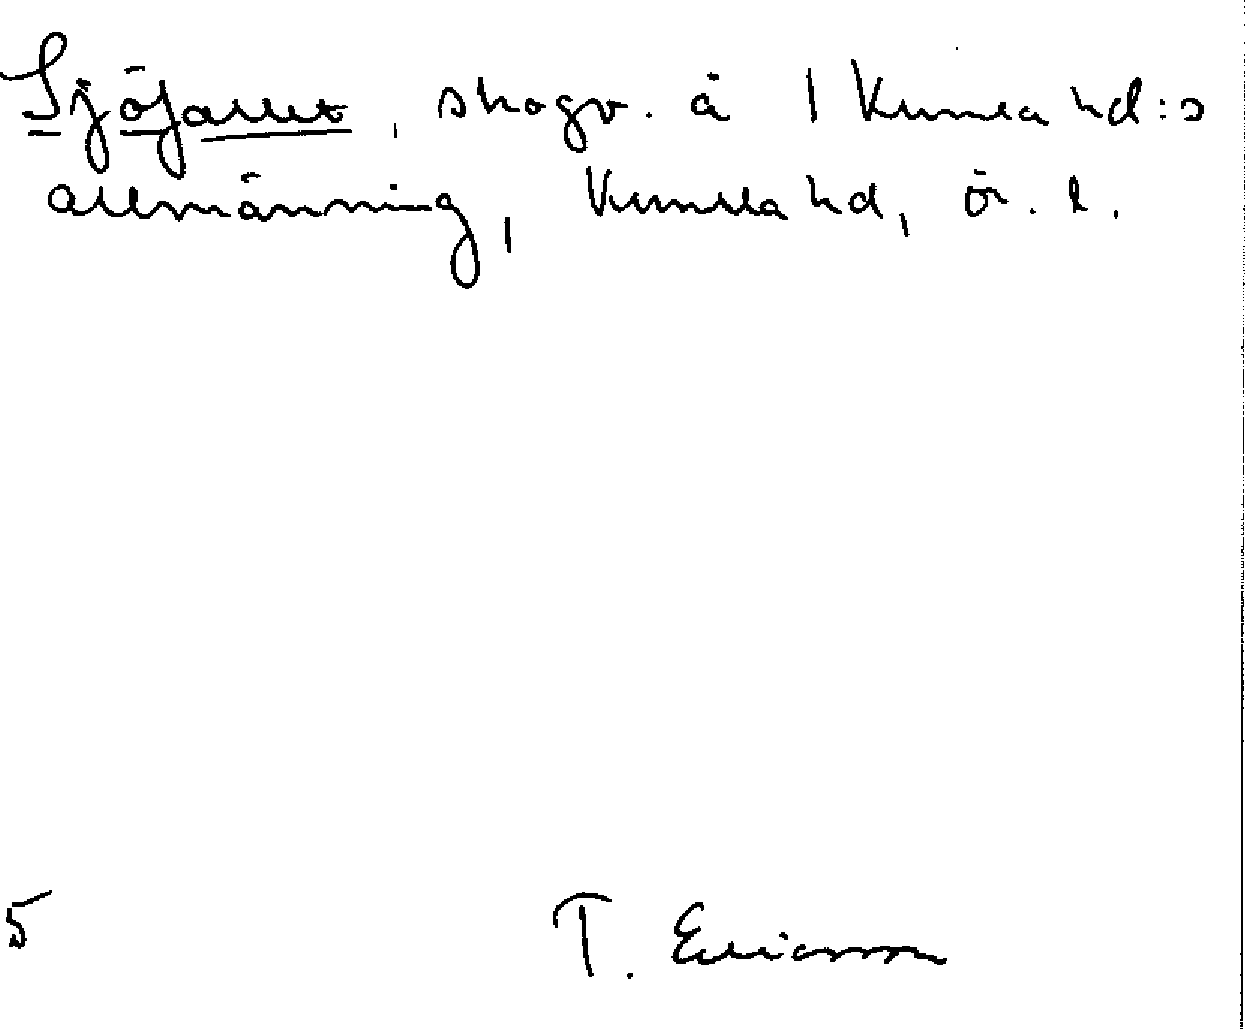 Sjöfallet, skogv. å | Kumla hd:s
allmänning, Kumla hd, ör. l.
5 T. Ericsson